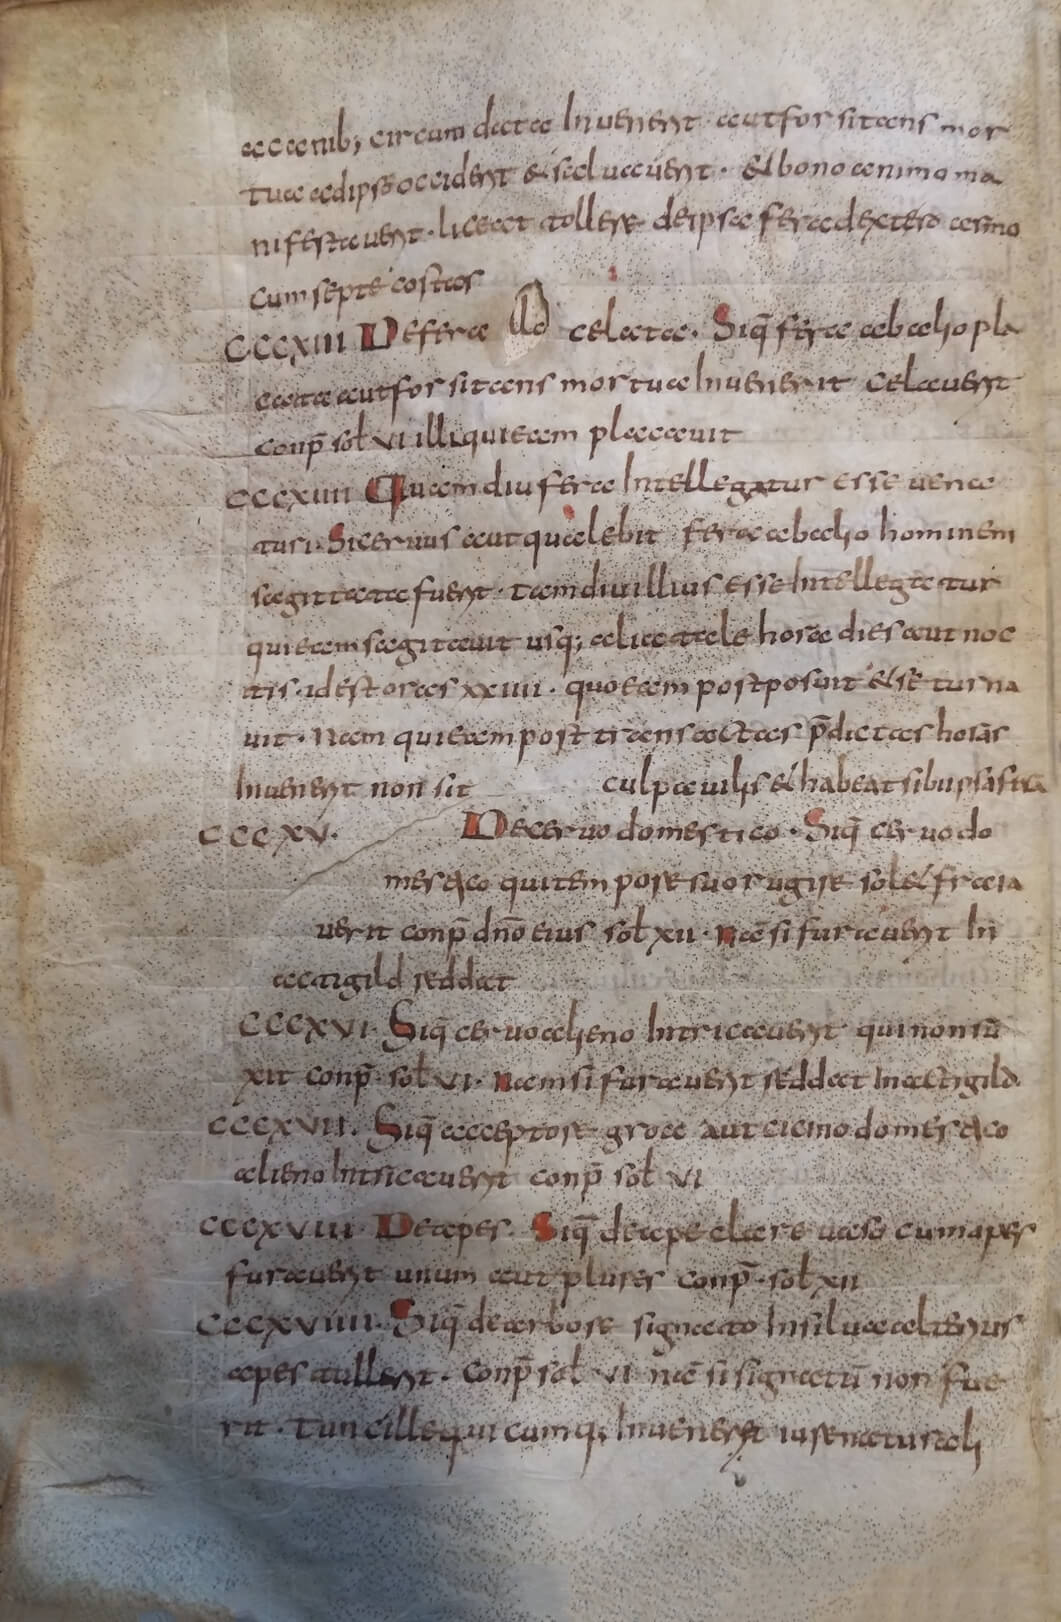 a canib; circumdata Inuenerit aut forsitans mor
tua ad ipso occiderit et saluauerit. et bono animo ma
nifestauerit. liceat tollere de ipsa fera dextero armo
cum septē costas
CCCXIII De fera
celata. Siq̄ fera ab alio pla
cata aut forsitans mortua Inuenerit celauerit
conp̄ sol VI illi qui eam placauit
CCCXIIII Quamdiu fera Intellegatur esse uena
turi. Si ceruus aut qualebit fera ab alio hominem
sagittata fuerit. tamdiu illius esse Intellegatur
qui eam sagitauit usq; ad alia tale hora dies aut noc
tis. id est oras XXIIII. quo eam postposuit et se turna
uit. Nam qui eam post transactas p̄dictas horas
Inuenerit non sit culpauilis et habeat sibi ipsa fera
CCCXV. De ceruo domestico. Siq̄ ceruo do
mestico qui tempore suo rugire solet fragia
uerit conp̄ dn̄o eius sol XII. Nā si furauerit In
actigild reddat
CCCXVI. Siq̄ ceruo alieno Intricauerit qui non ru
xit conp̄ sol VI. Nam si furauerit reddat In actigild
CCCXVII. Siq̄ acceptore groa aut cicino domestico
alieno Intricauerit conp̄ sol VI
CCCXVIII. De apes. Siq̄ de apeclare uaso cum apes
furauerit unum aut plures conp̄. sol XII
CCCXVIIII. Siq̄ de arbore signato In silua alterius
apes tullerit. Conp̄ sol VI nā si signatū non fue
rit. Tunc ille qui cumq; Inuenerit iure naturali